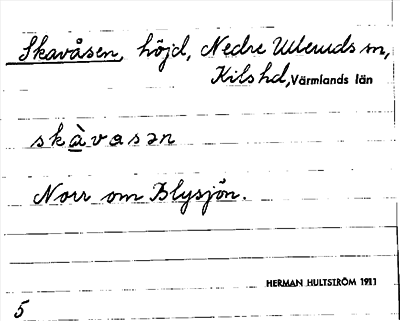 Skavåsen, höjd, Nedre Ulleruds sn,
Kils hd, Värmlands län
skàvasən
Norr om Blysjön.
HERMAN HULTSTRÖM 1921
5